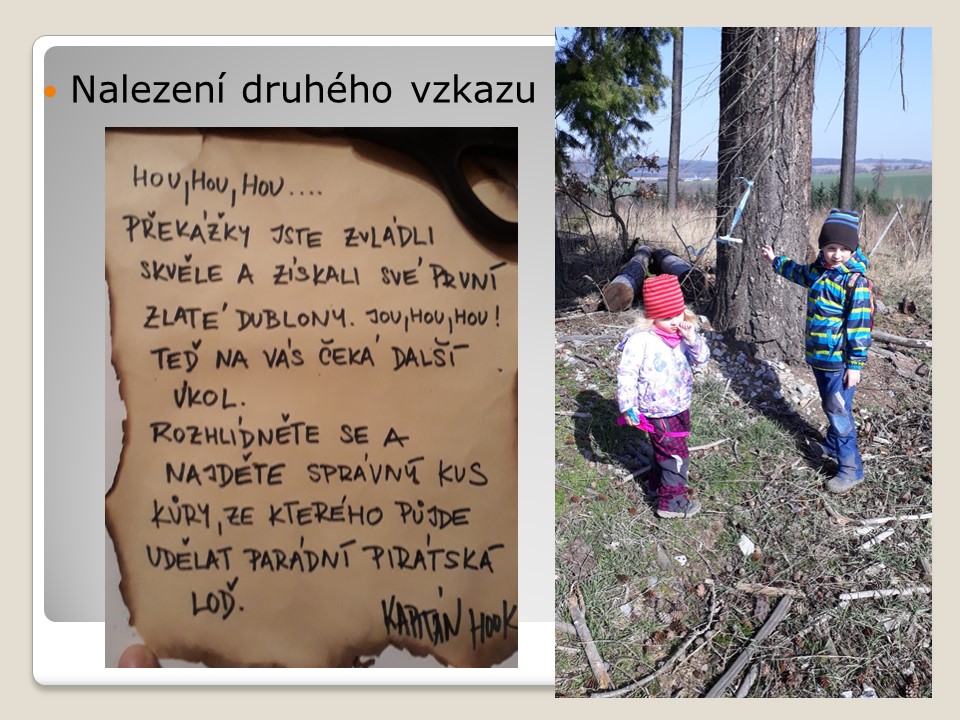 Nalezení druhého vzkazu
HOU, HOU, HOU....
PŘEKÁŽKY JSTE ZVLÁDLI
SKVĚLE A ZÍSKALI SVÉ PRVNÍ
ZLATÉ DUBLONY. JOU, HOU, HOU!
TEĎ NA VÁS ČEKÁ DALŠÍ
ÚKOL.
ROZHLÍDNĚTE SE A
NAJDĚTE SPRÁVNÝ KUS
KŮRY, ZE KTERÉHO PŮJDE
UDĚLAT PARÁDNÍ PIRÁTSKÁ
LOĎ.
KAPITÁN HOOK